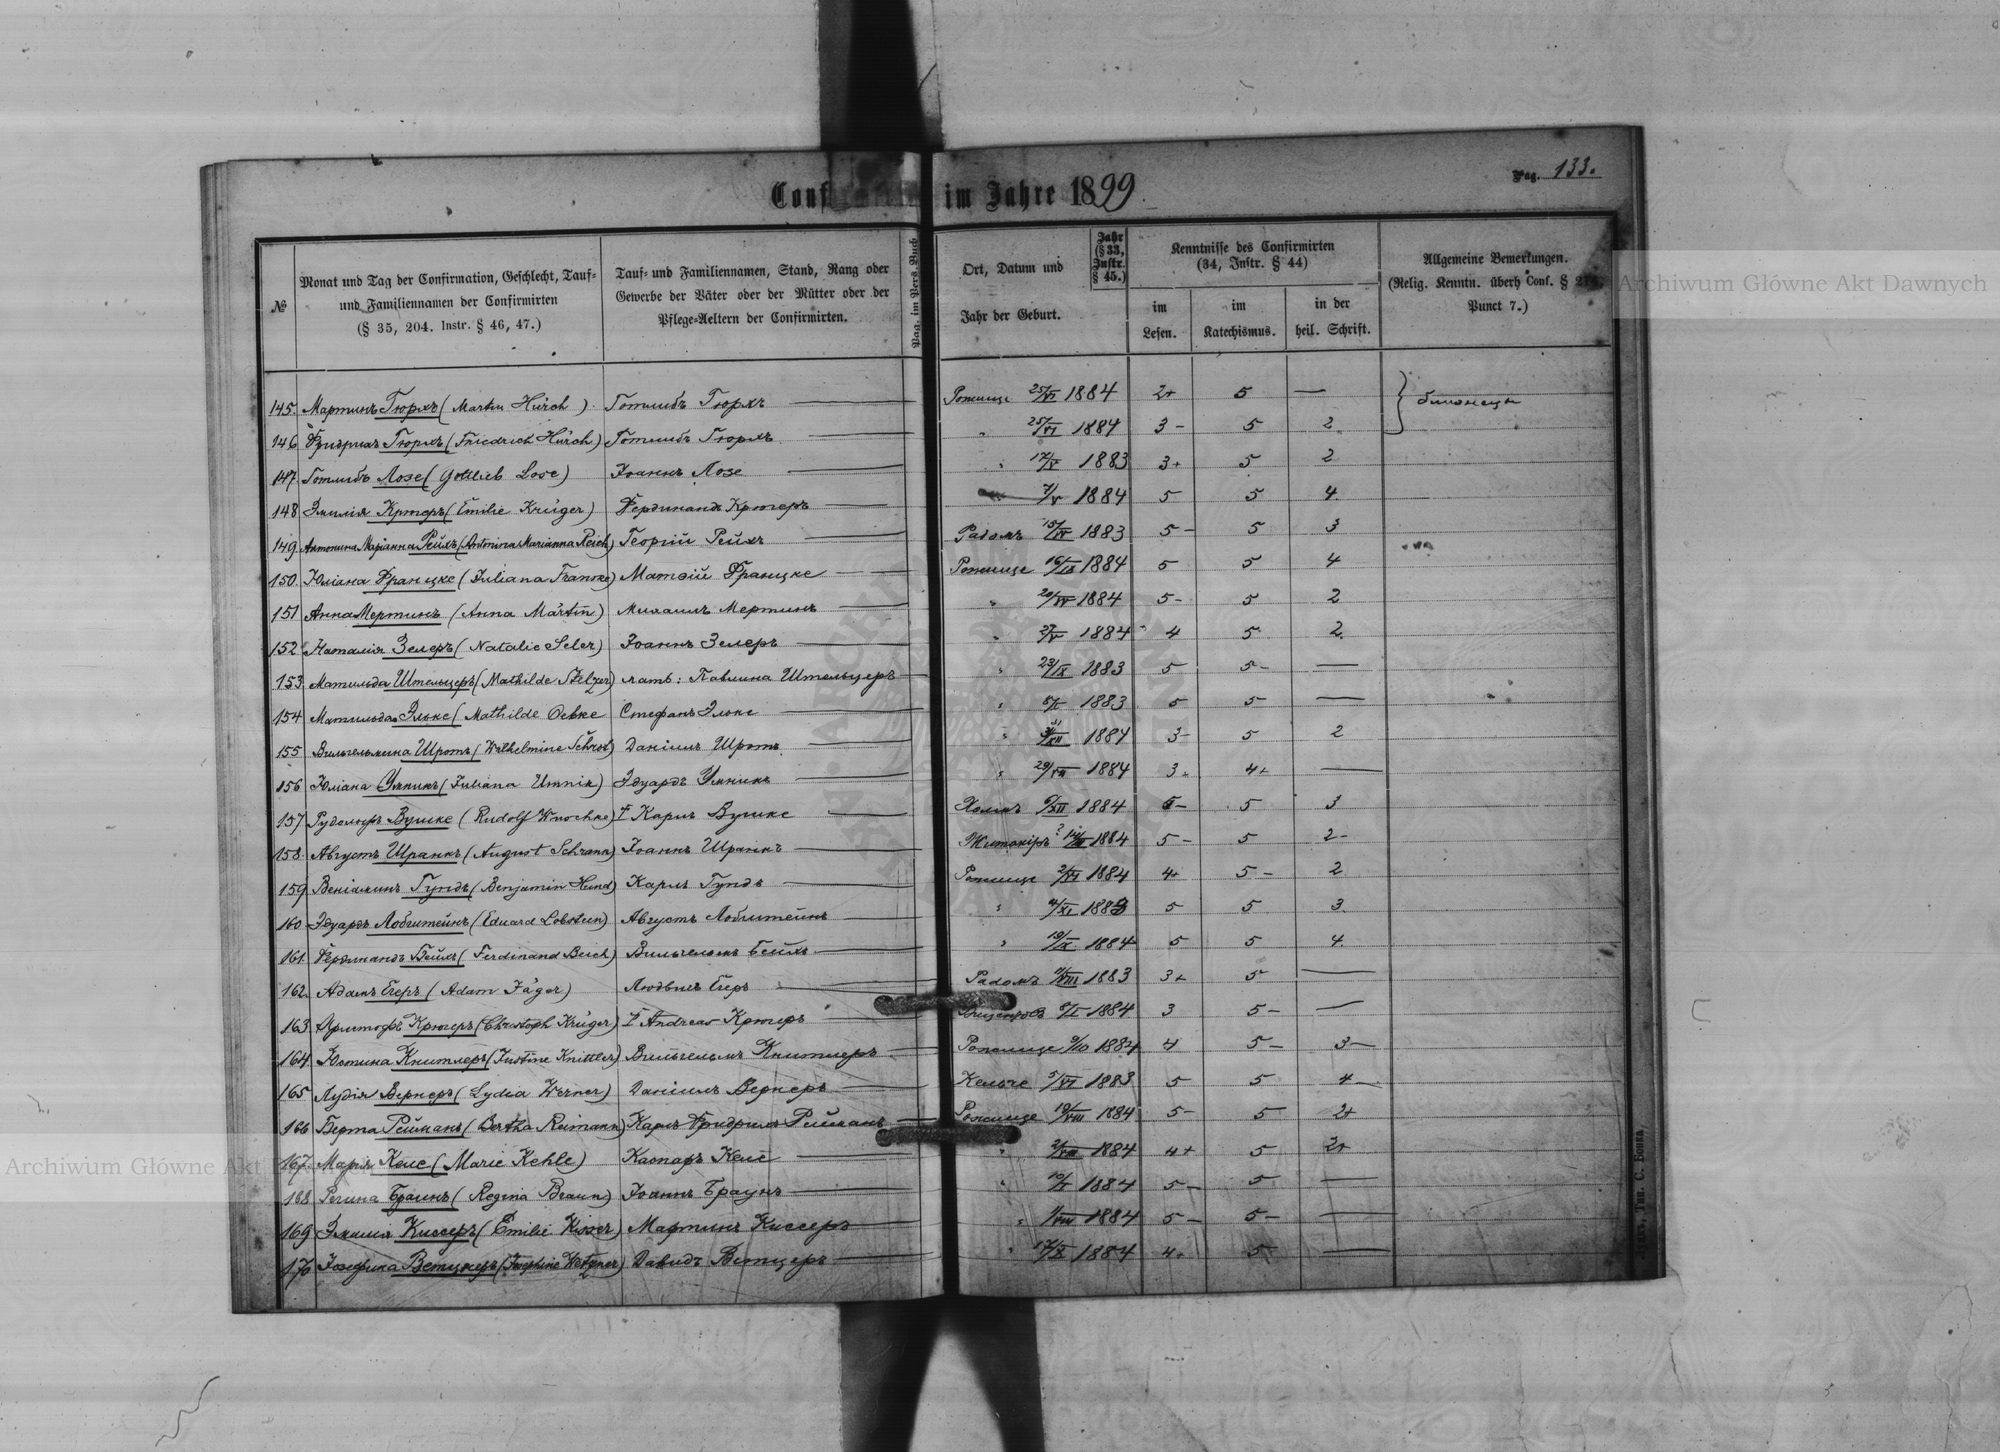 Confirmirte im Jahre 1899
Pag. 133.
№
Monat und Tag der Confirmation, Geschlecht, Tauf-
und Familiennamen der Confirmirten
(§ 35, 204. Instr. § 46, 47.)
Tauf- und Familiennamen, Stand, Rang oder
Gewerbe der Väter oder der Mütter oder der
Pflege-Aeltern der Confirmirten.
Pag. im Pers. Buch
Ort, Datum und
Jahr der Geburt.
Jahr
(§ 33,
Instr.
§ 45.)
Kenntnisse des Confirmirten
(34, Instr. § 44)
im
Lesen.
im
Katechismus.
in der
heil. Schrift.
Allgemeine Bemerkungen.
(Relig. Kenntn. überh. Conf. §
Punct 7.)
145. Мартинъ Гюрхъ (Martin Hürch) Готлибъ Гюрхъ — Рожище 25/VI 1884 2+ 5 — близнецы
146 Фридрихъ Гюрхъ (Friedrich Hürch) Готлибъ Гюрхъ — " 25/VI 1884 3- 5 2
147. Готлибъ Лозе (Gottlieb Lose) Іоаннъ Лозе — " 17/V 1883 3+ 5 2
148 Эмилія Крюгеръ (Emilie Krüger) Фердинандъ Крюгеръ — 7/V 1884 5 5 4
149 Антонина Маріанна Рейхъ (Antonina Marianna Reich) Георгій Рейхъ — Радомъ 1883 5- 5 3
150. Юліана Францке (Juliana Franzke) Матвій Францке — Рожище 16/IX 1884 5 5 4
151 Анна Мертинъ (Anna Märtin) Михаилъ Мертинъ — " 1884 5- 5 2
152 Наталія Зелеръ (Natalie Seler) Іоаннъ Зелеръ — " 27/V 1884 4 5 2
153. Матильда Штельцеръ (Mathilde Stelzer) мать: Павлина Штельцеръ — " 23/IX 1883 5 5- —
154 Матильда Эльке (Mathilde Oelke Стефанъ Эльке — " 1883 5 5 —
155 Вильгельмина Шротъ (Wilhelmine Schrot) Даніилъ Шротъ — " 31/XII 1884 3- 5 2
156 Юліана Умникъ (Juliana Umnik) Эдуардъ Умникъ — " 29/VII 1884 3- 4+ —
157 Рудольфъ Вушке (Rudolf Wuschke) † Карлъ Вушке — Холмъ 1884 5- 5 3
158. Августъ Шранкъ (August Schrank) Іоаннъ Шранкъ — Житоміръ ? 1884 5- 5 2-
159 Веніаминъ Гундъ (Benjamin Hund) Карлъ Гундъ — Рожище 2/XI 1884 4+ 5- 2
160 Эдуардъ Лобштейнъ (Eduard Lobstein) Августъ Лобштейнъ — " 1883 5 5 3
161 Фердинандъ Бейхъ (Ferdinand Beich) Вильгельмъ Бейхъ — " 19/IX 1884 5 5 4
162. Адамъ Егеръ (Adam Jäger) Людвигъ Егеръ — Радомъ 1883 3+ 5 —
163 Христофъ Крюгеръ (Christoph Krüger) † Andreas Крюгеръ 1884 3 5- —
164 Юстина Книтлеръ (Justine Knittler) Вильгельмъ Книтлеръ — Рожище 9/10 1884 4 5- 3-
165 Лудія Вернеръ (Lydia Werner) Даніилъ Вернеръ — Кельче 5/VI 1883 5 5 4-
166 Берта Рейманъ (Bertha Reimann) Карлъ Фридрихъ Рейманъ — Рожище 19/VIII 1884 5- 5 2+
167 Марія Келе (Marie Kehle) Каспаръ Келе — " 1884 4+ 5 2+
168. Регина Браунъ (Regina Braun) Іоаннъ Браунъ — " 1884 5- 5 —
169 Эмилія Киссеръ (Emilie Kisser) Мартинъ Киссеръ — " 1884 5- 5- —
170 Іозефина Ветцнеръ (Josephine Wetzner) Давидъ Ветцеръ — " 17/X 1884 4+ 5 —
Archiwum Główne Akt Dawnych
Archiwum Główne Akt Dawnych